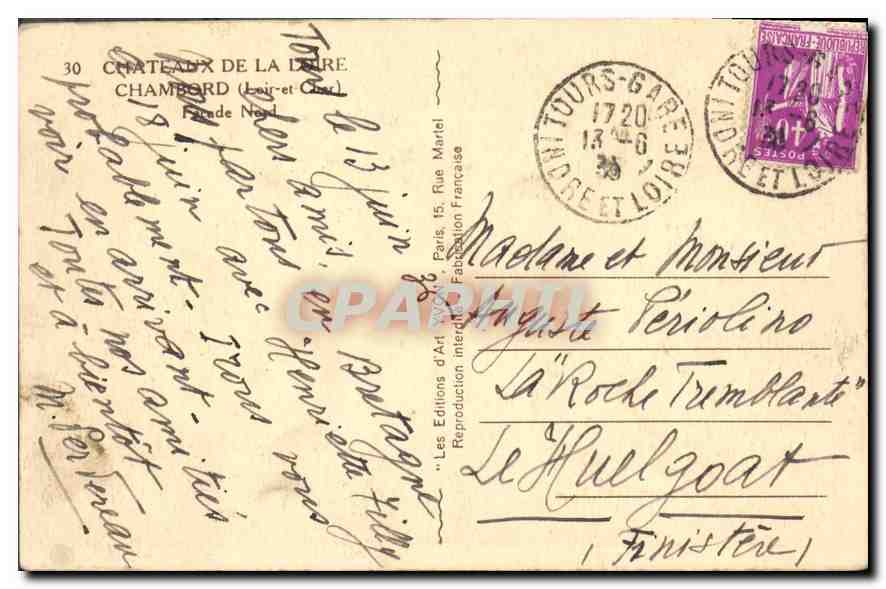 30 CHATEAUX DE LA LOIRE
CHAMBORD (Loir-et-Cher)
Façade Nord
Tours le 13 juin 36
chers amis, en Bretagne
partons avec Henriette
18 juin. nous vous
probablement. arrivant
voir en Toutes nos amitiés
et à bientôt
M.
"Les Editions d'Art YVON", Paris, 15, Rue Martel
Reproduction interdite Fabrication Française
TOURS-GARE
17 20
13 -6
36
INDRE ET LOIRE
TOURS-GARE
17 20
13 -6
36
INDRE ET LOIRE
REPUBLIQUE FRANÇAISE
POSTES
40
Madame et Monsieur
Auguste Périolino
La "Roche Tremblante"
Le Huelgoat
(Finistère)
CPAPHIL